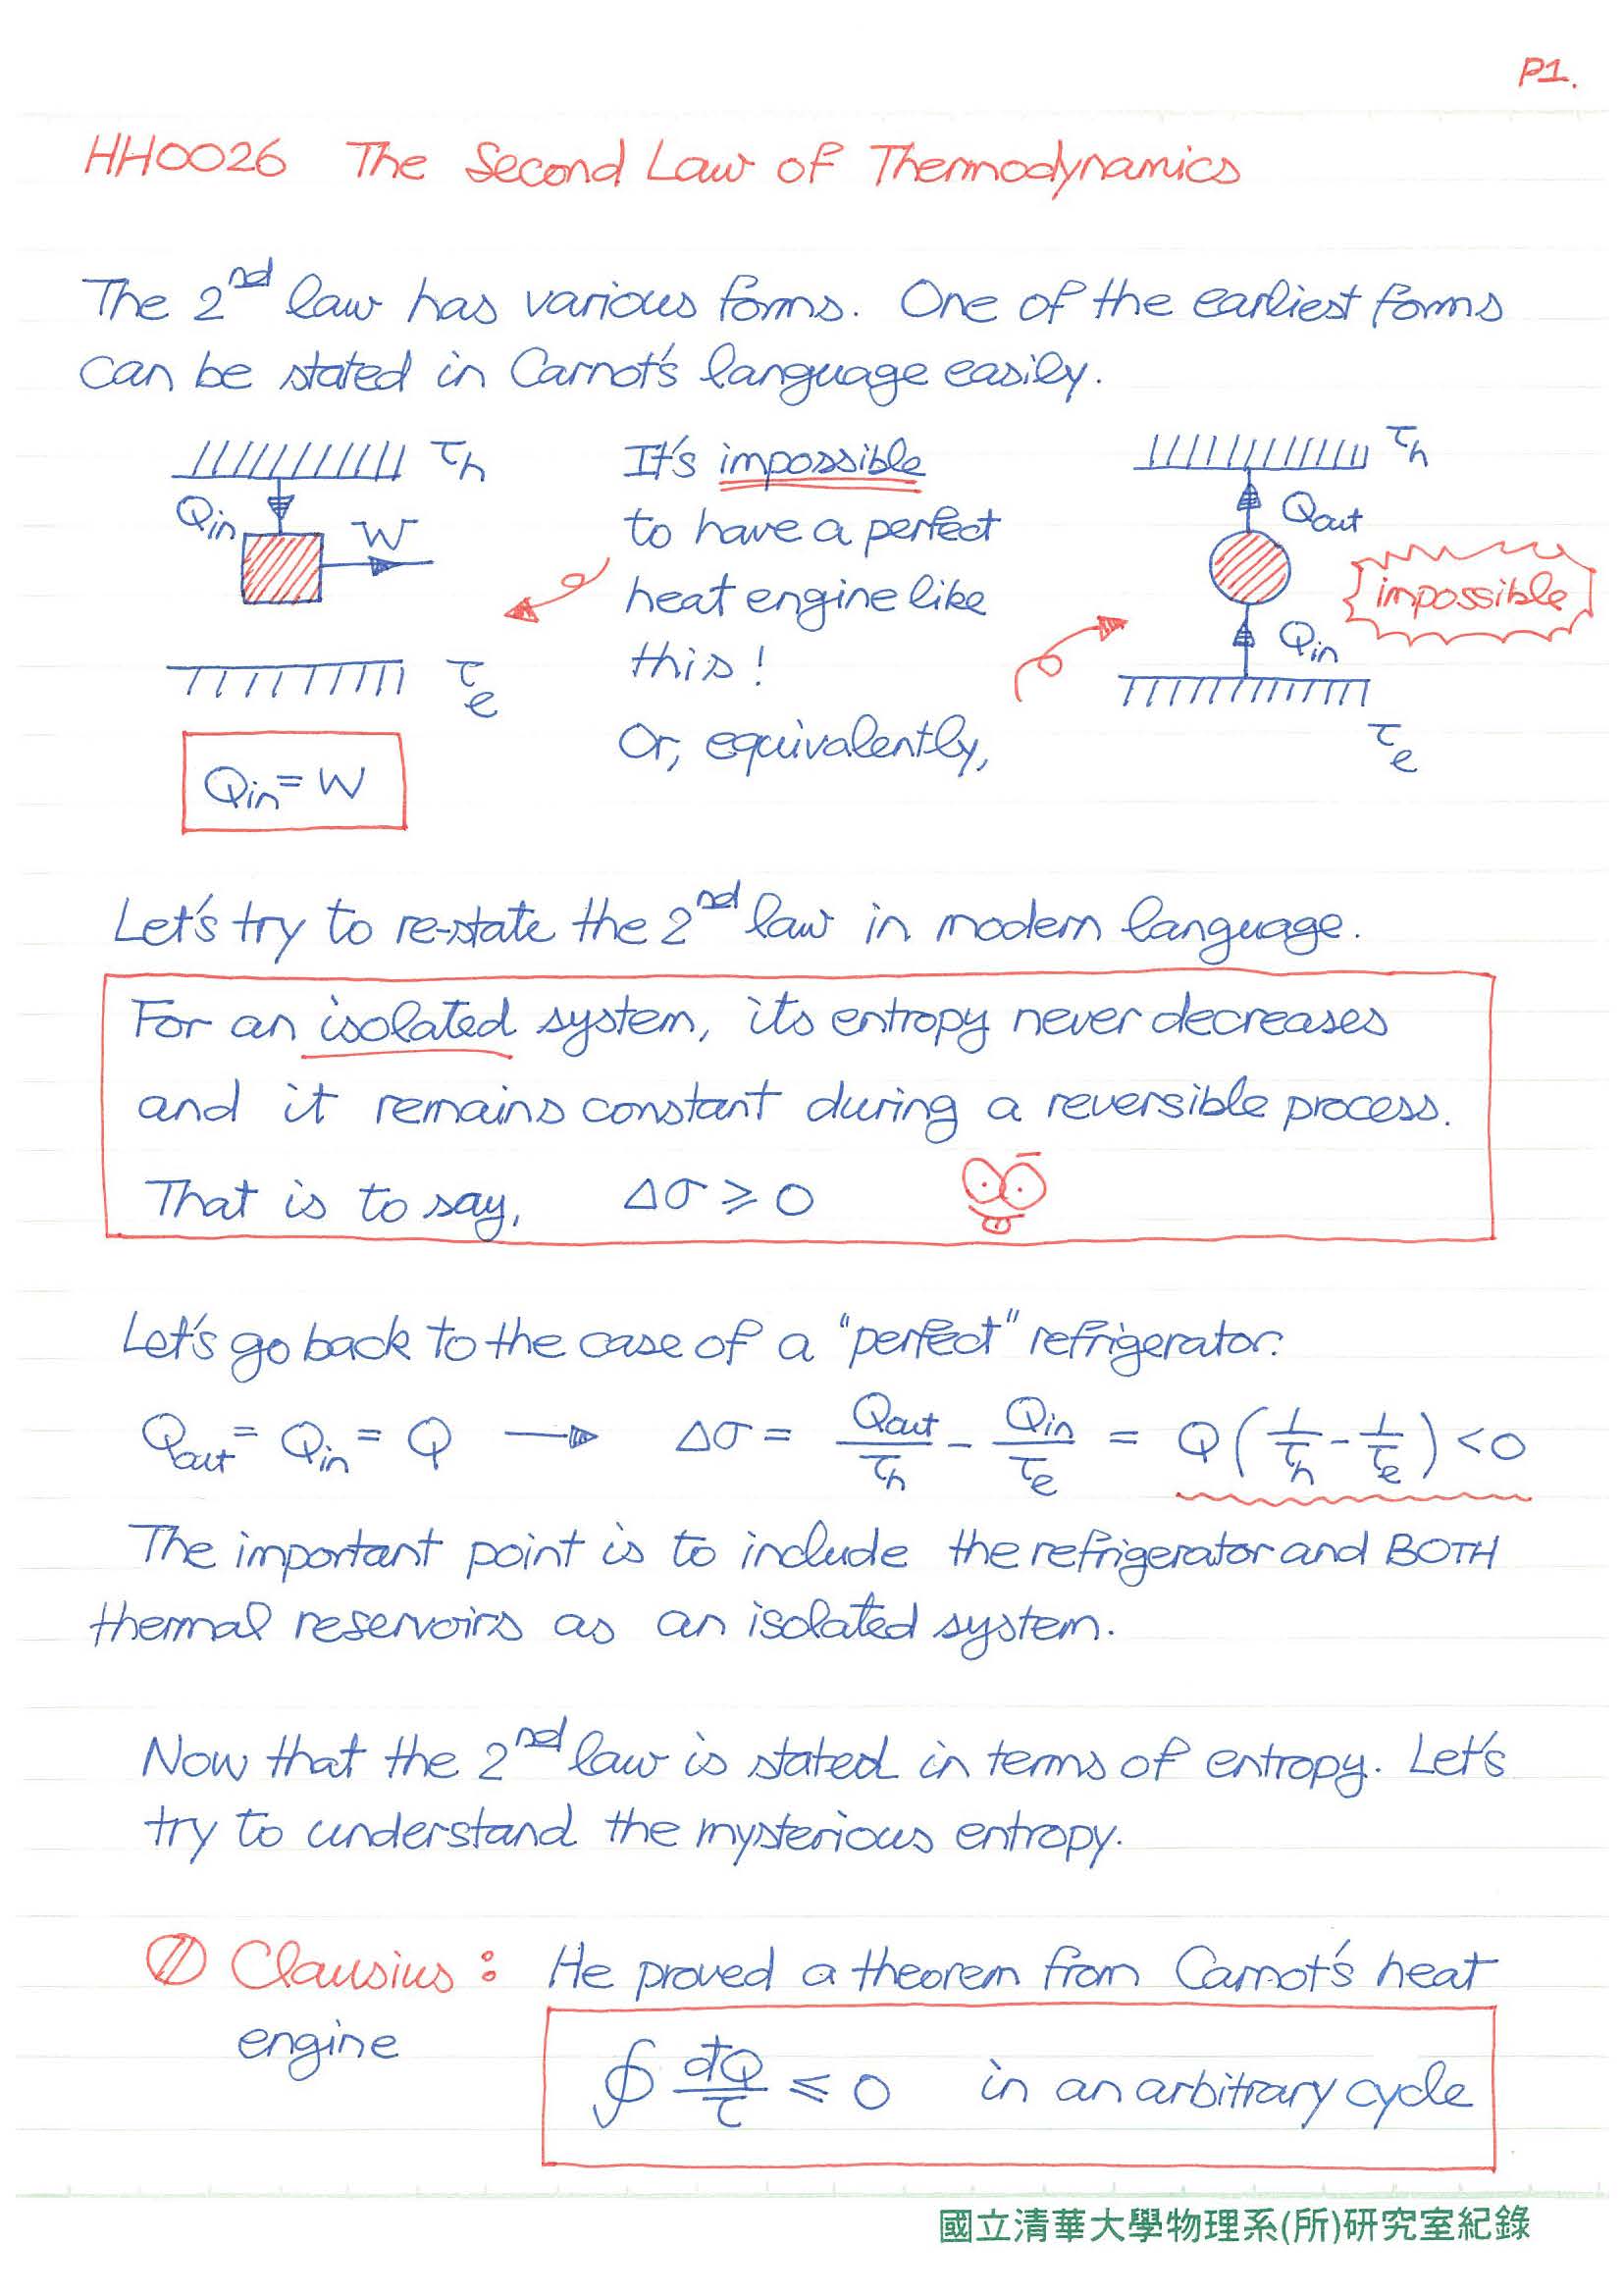 P1.
HH0026 The Second Law of Thermodynamics
The 2nd law has various forms. One of the earliest forms
can be stated in Carnot's language easily.
τh
Qin
W
τℓ
Qin = W
It's impossible
to have a perfect
heat engine like
this!
Or, equivalently,
τh
Qout
impossible
Qin
τℓ
Let's try to re-state the 2nd law in modern language.
For an isolated system, its entropy never decreases
and it remains constant during a reversible process.
That is to say, Δσ ⩾ 0
Let's go back to the case of a "perfect" refrigerator:
Qout = Qin = Q → Δσ = Qout/τh - Qin/τℓ = Q(1/τh - 1/τℓ) < 0
The important point is to include the refrigerator and BOTH
thermal reservoirs as an isolated system.
Now that the 2nd law is stated in terms of entropy. Let's
try to understand the mysterious entropy.
Clausius : He proved a theorem from Carnot's heat
engine
∮ đQ/τ ⩽ 0 in an arbitrary cycle
國立清華大學物理系(所)研究室紀錄